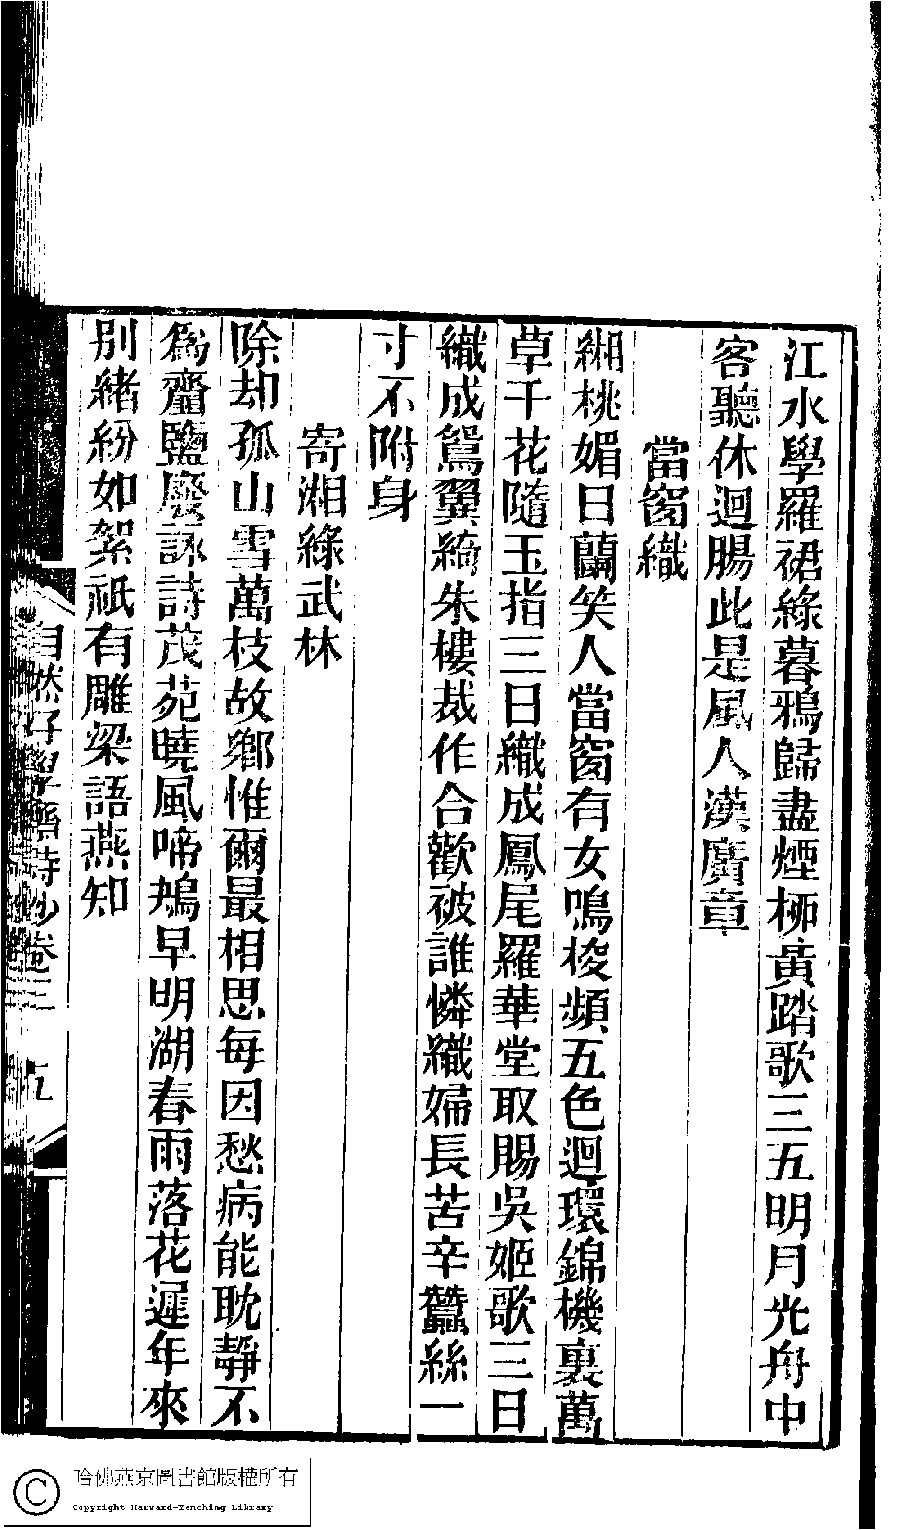 江水學羅裙綠暮鴉歸盡煙栁黃踏歌三五明月光舟中
客聽休迴腸此是風人漢廣章
當窗織
緗桃媚日蘭笑人當窗有女鳴梭頻五色迴環錦機裏萬
草千花隨玉指三日織成鳳尾羅華堂取賜吳姬歌三日
織成鴛翼綺朱樓裁作合歡被誰憐織婦長苦辛蠶絲一
寸不附身
寄湘綠武林
除却孤山雪萬枝故鄉惟爾最相思每因愁病能耽靜不
爲齏鹽廢詠詩茂苑曉風啼鴂早明湖春雨落花遲年來
別緒紛如絮祇有雕梁語燕知
自然好學齋詩鈔卷三
九
哈佛燕京圖書館版權所有
Copyright Harvard-Yenching Library